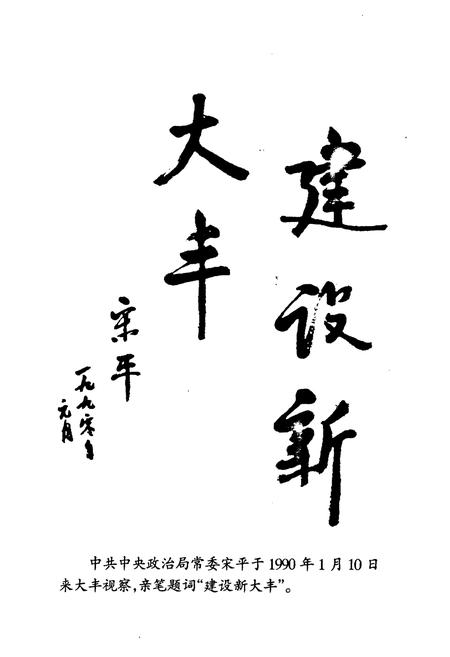 建设新
大丰
宋平
一九九零年
元月
中共中央政治局常委宋平于1990年1月10日
来大丰视察,亲笔题词“建设新大丰”。